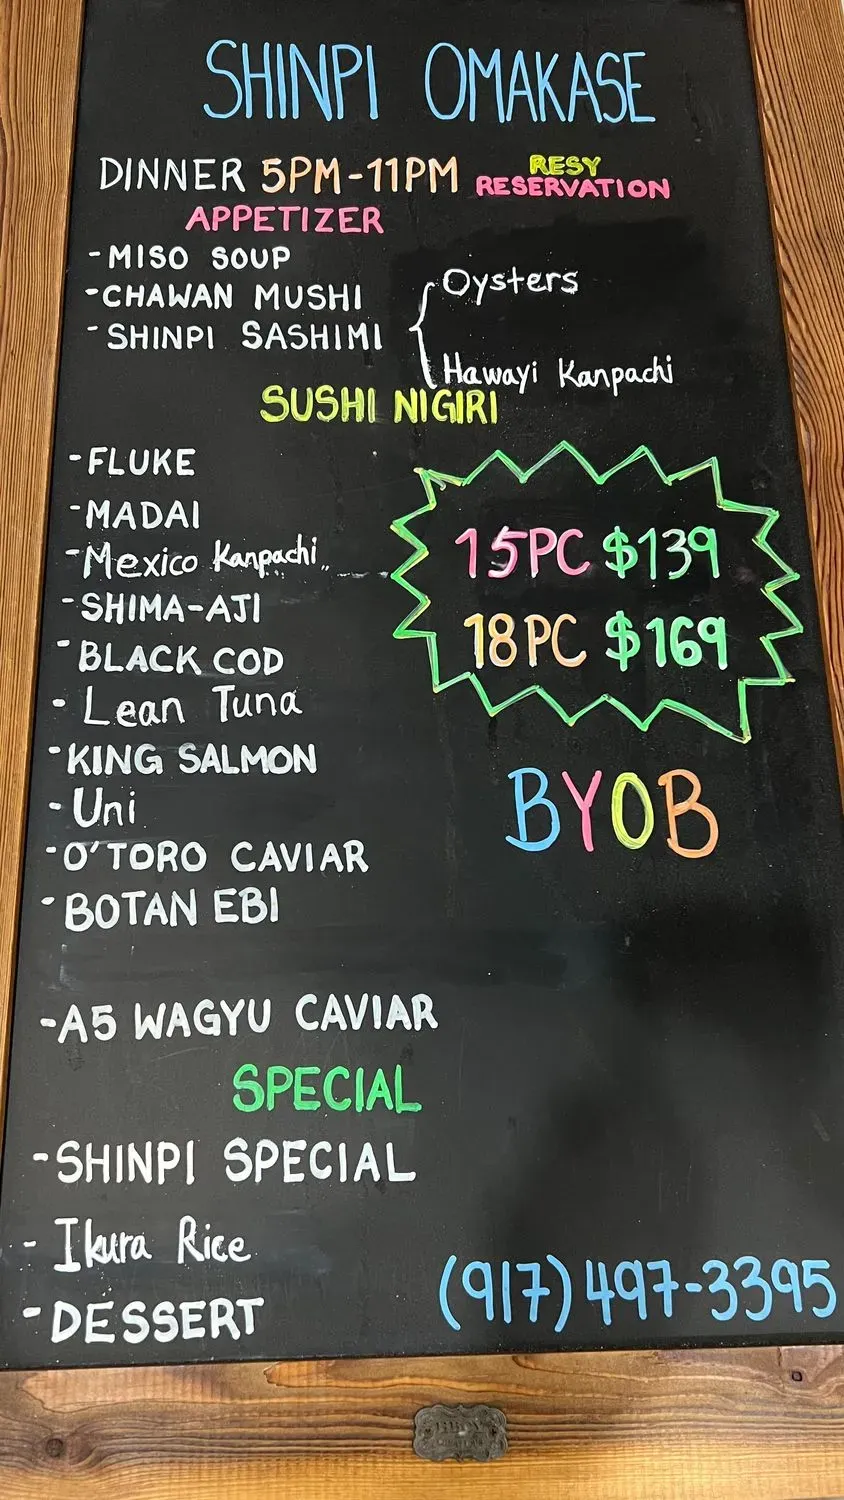 SHINPI OMAKASE
DINNER 5PM-11PM RESY RESERVATION
APPETIZER
-MISO SOUP
-CHAWAN MUSHI
-SHINPI SASHIMI
Oysters
Hawayi Kanpachi
SUSHI NIGIRI
-FLUKE
-MADAI
-Mexico Kanpachi
-SHIMA-AJI
-BLACK COD
- Lean Tuna
-KING SALMON
- Uni
-O'TORO CAVIAR
-BOTAN EBI
-A5 WAGYU CAVIAR
15PC $139
18PC $169
BYOB
SPECIAL
-SHINPI SPECIAL
- Ikura Rice
-DESSERT
(917)497-3395